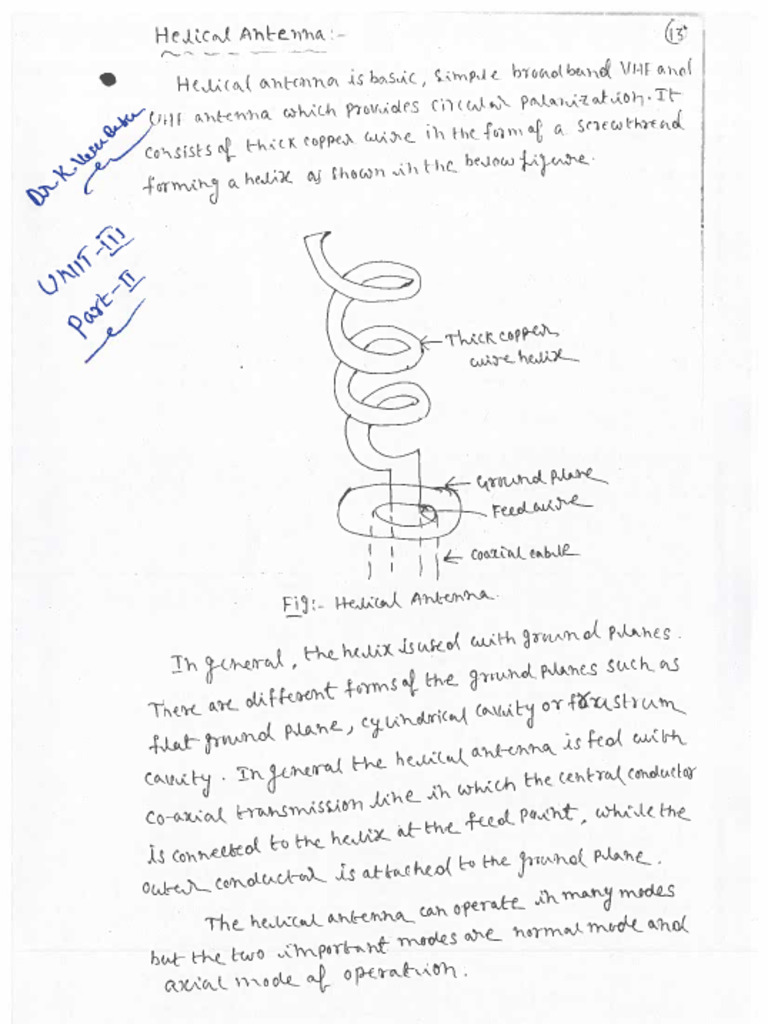 Helical Antenna:-
13
Helical antenna is basic, simple broadband VHF and
UHF antenna which provides circular palanization. It
consists of thick copper wire in the form of a screw thread
forming a helix as shown in the below figure.
Dr. K.
UNIT-III
Part-II
Thick copper
wire helix
Ground plane
Feed wire
coaxial cable
Fig:- Helical Antenna.
In general, the helix is used with ground planes.
There are different forms of the ground planes such as
flat ground plane, cylindrical cavity or frustrum
cavity. In general the helical antenna is fed with
co-axial transmission line in which the central conductor
is connected to the helix at the feed point, while the
outer conductor is attached to the ground plane.
The helical antenna can operate in many modes
but the two important modes are normal mode and
axial mode of operation.